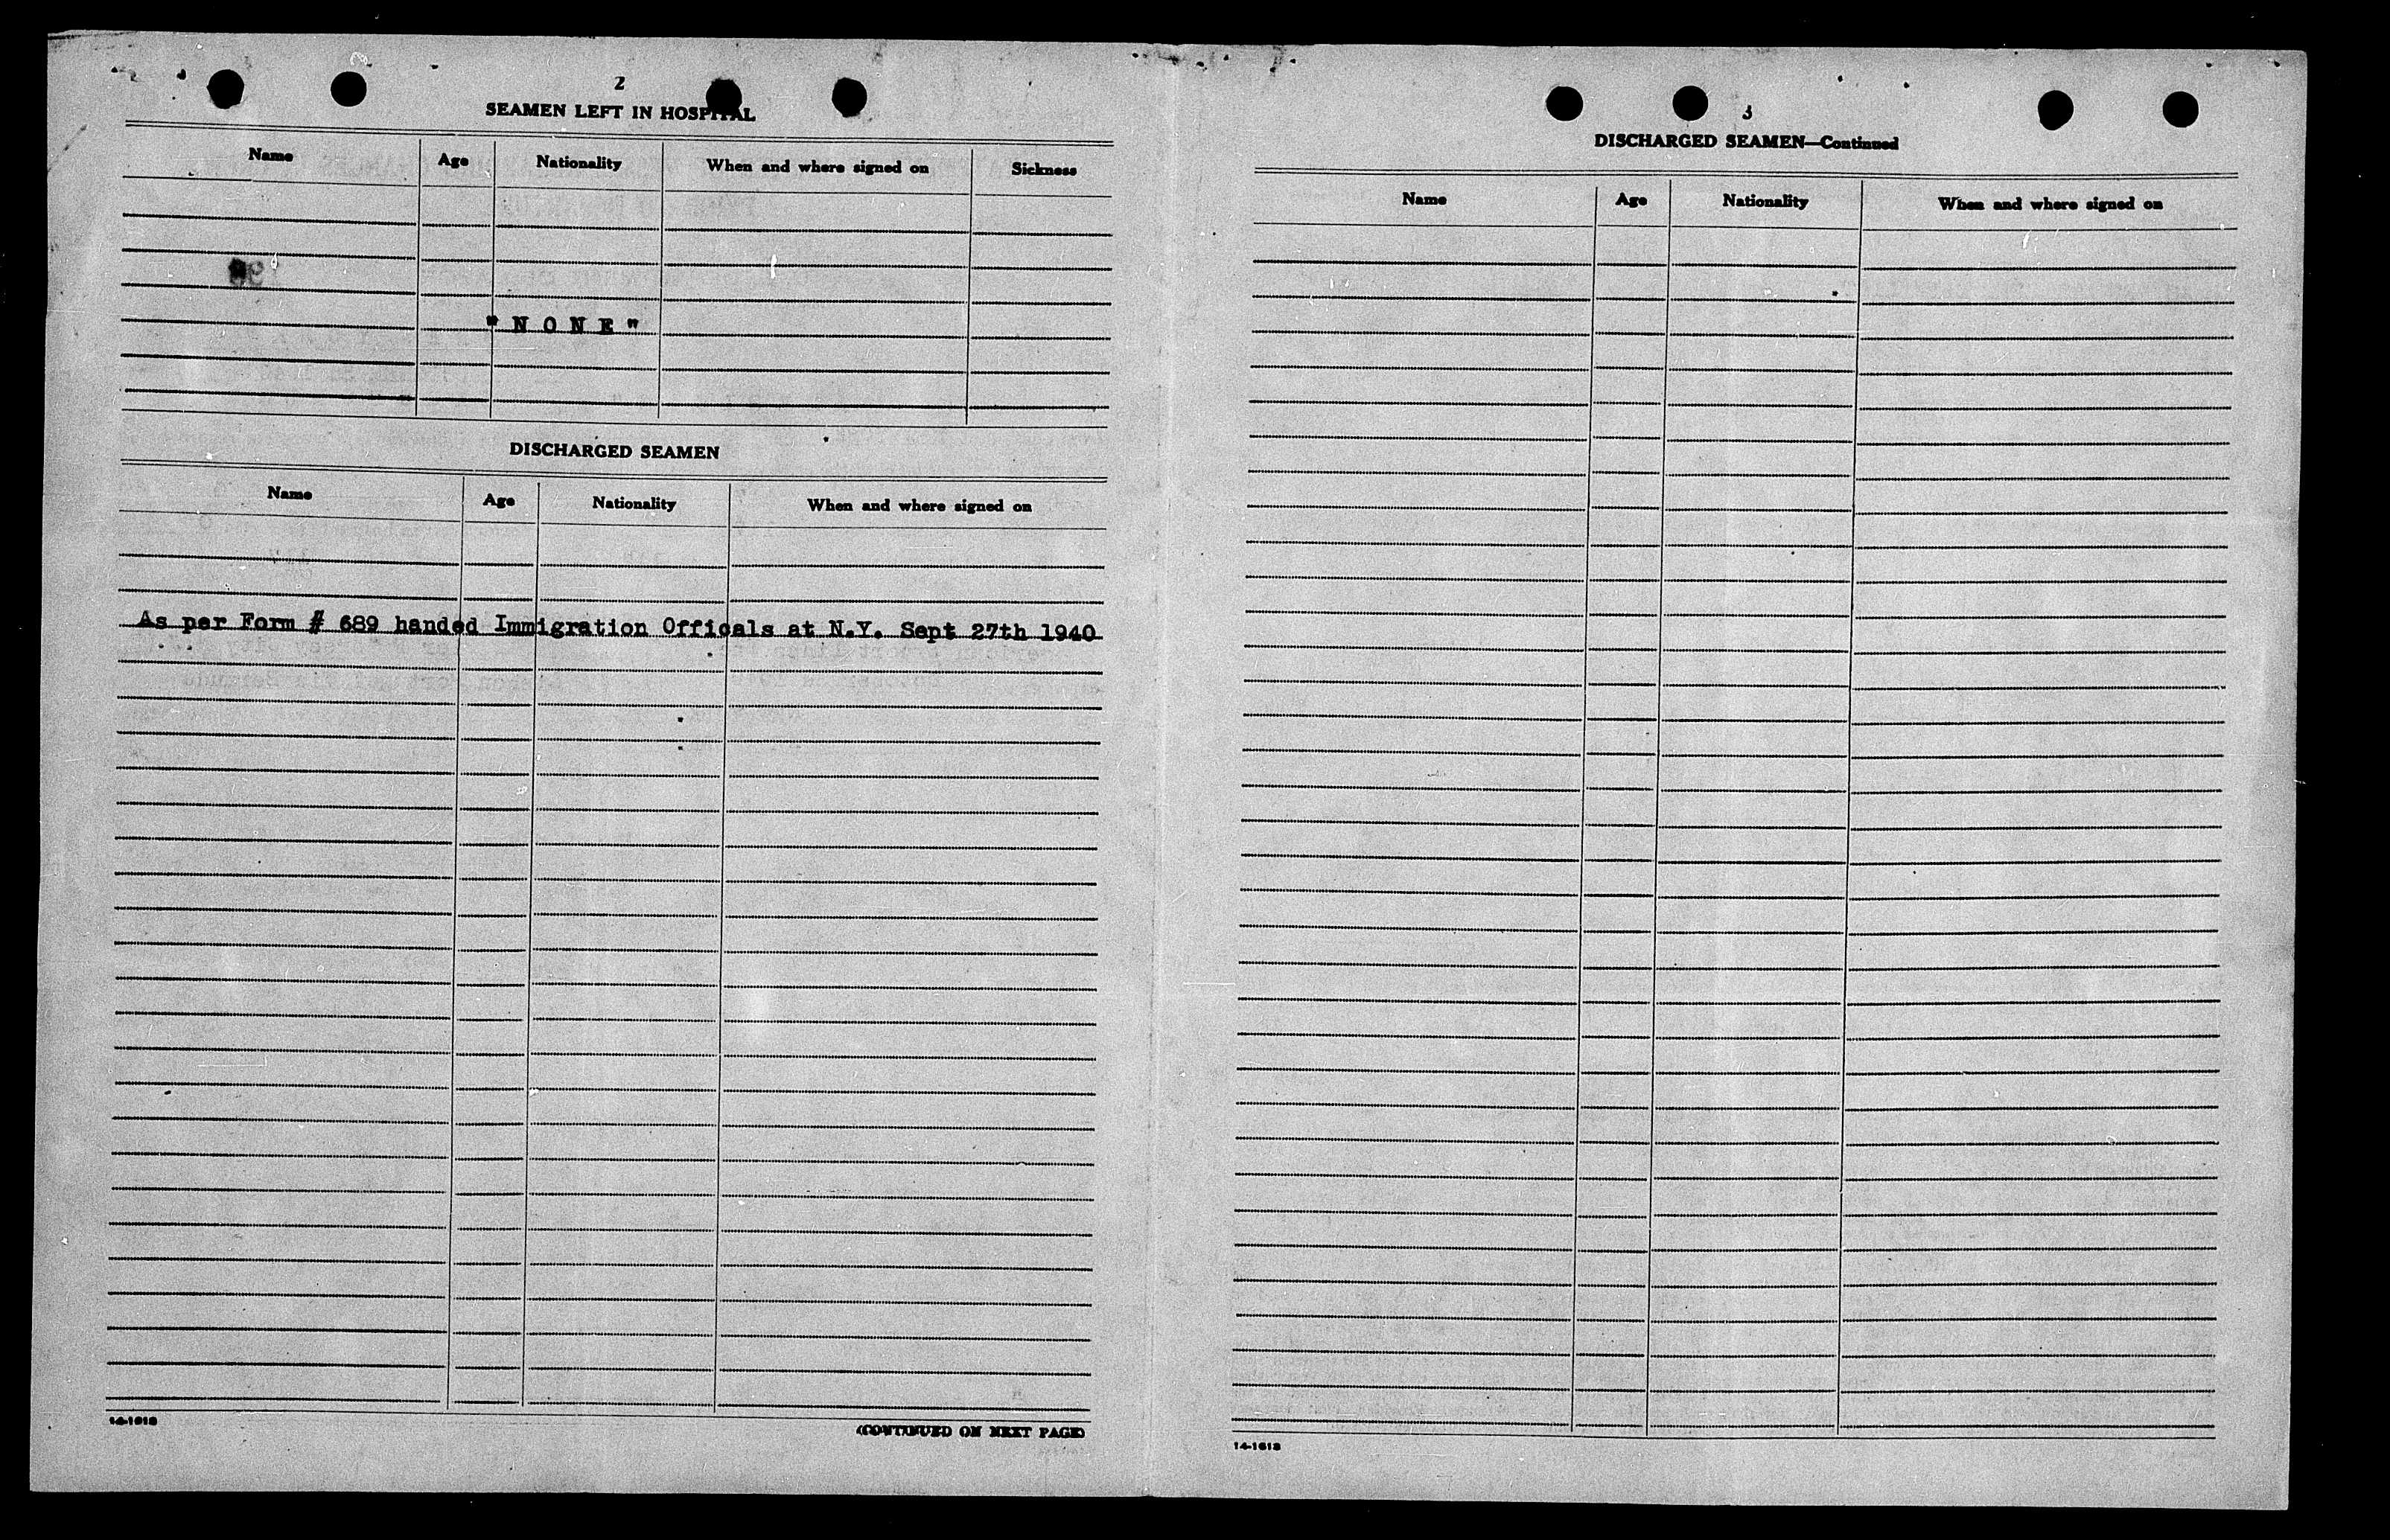 2
SEAMEN LEFT IN HOSPITAL
Name Age Nationality When and where signed on Sickness
"NONE"
DISCHARGED SEAMEN
Name Age Nationality When and where signed on
As per Form # 689 handed Immigration Officals at N.Y. Sept 27th 1940
14-1613
(CONTINUED ON NEXT PAGE)
3
DISCHARGED SEAMEN—Continued
Name Age Nationality When and where signed on
14-1613